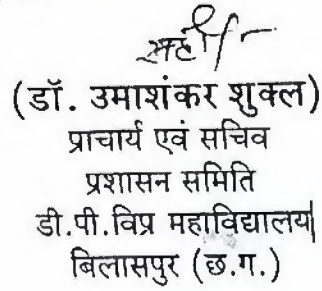 सही/-
(डॉ. उमाशंकर शुक्ल)
प्राचार्य एवं सचिव
प्रशासन समिति
डी.पी.विप्र महाविद्यालय
बिलासपुर (छ.ग.)